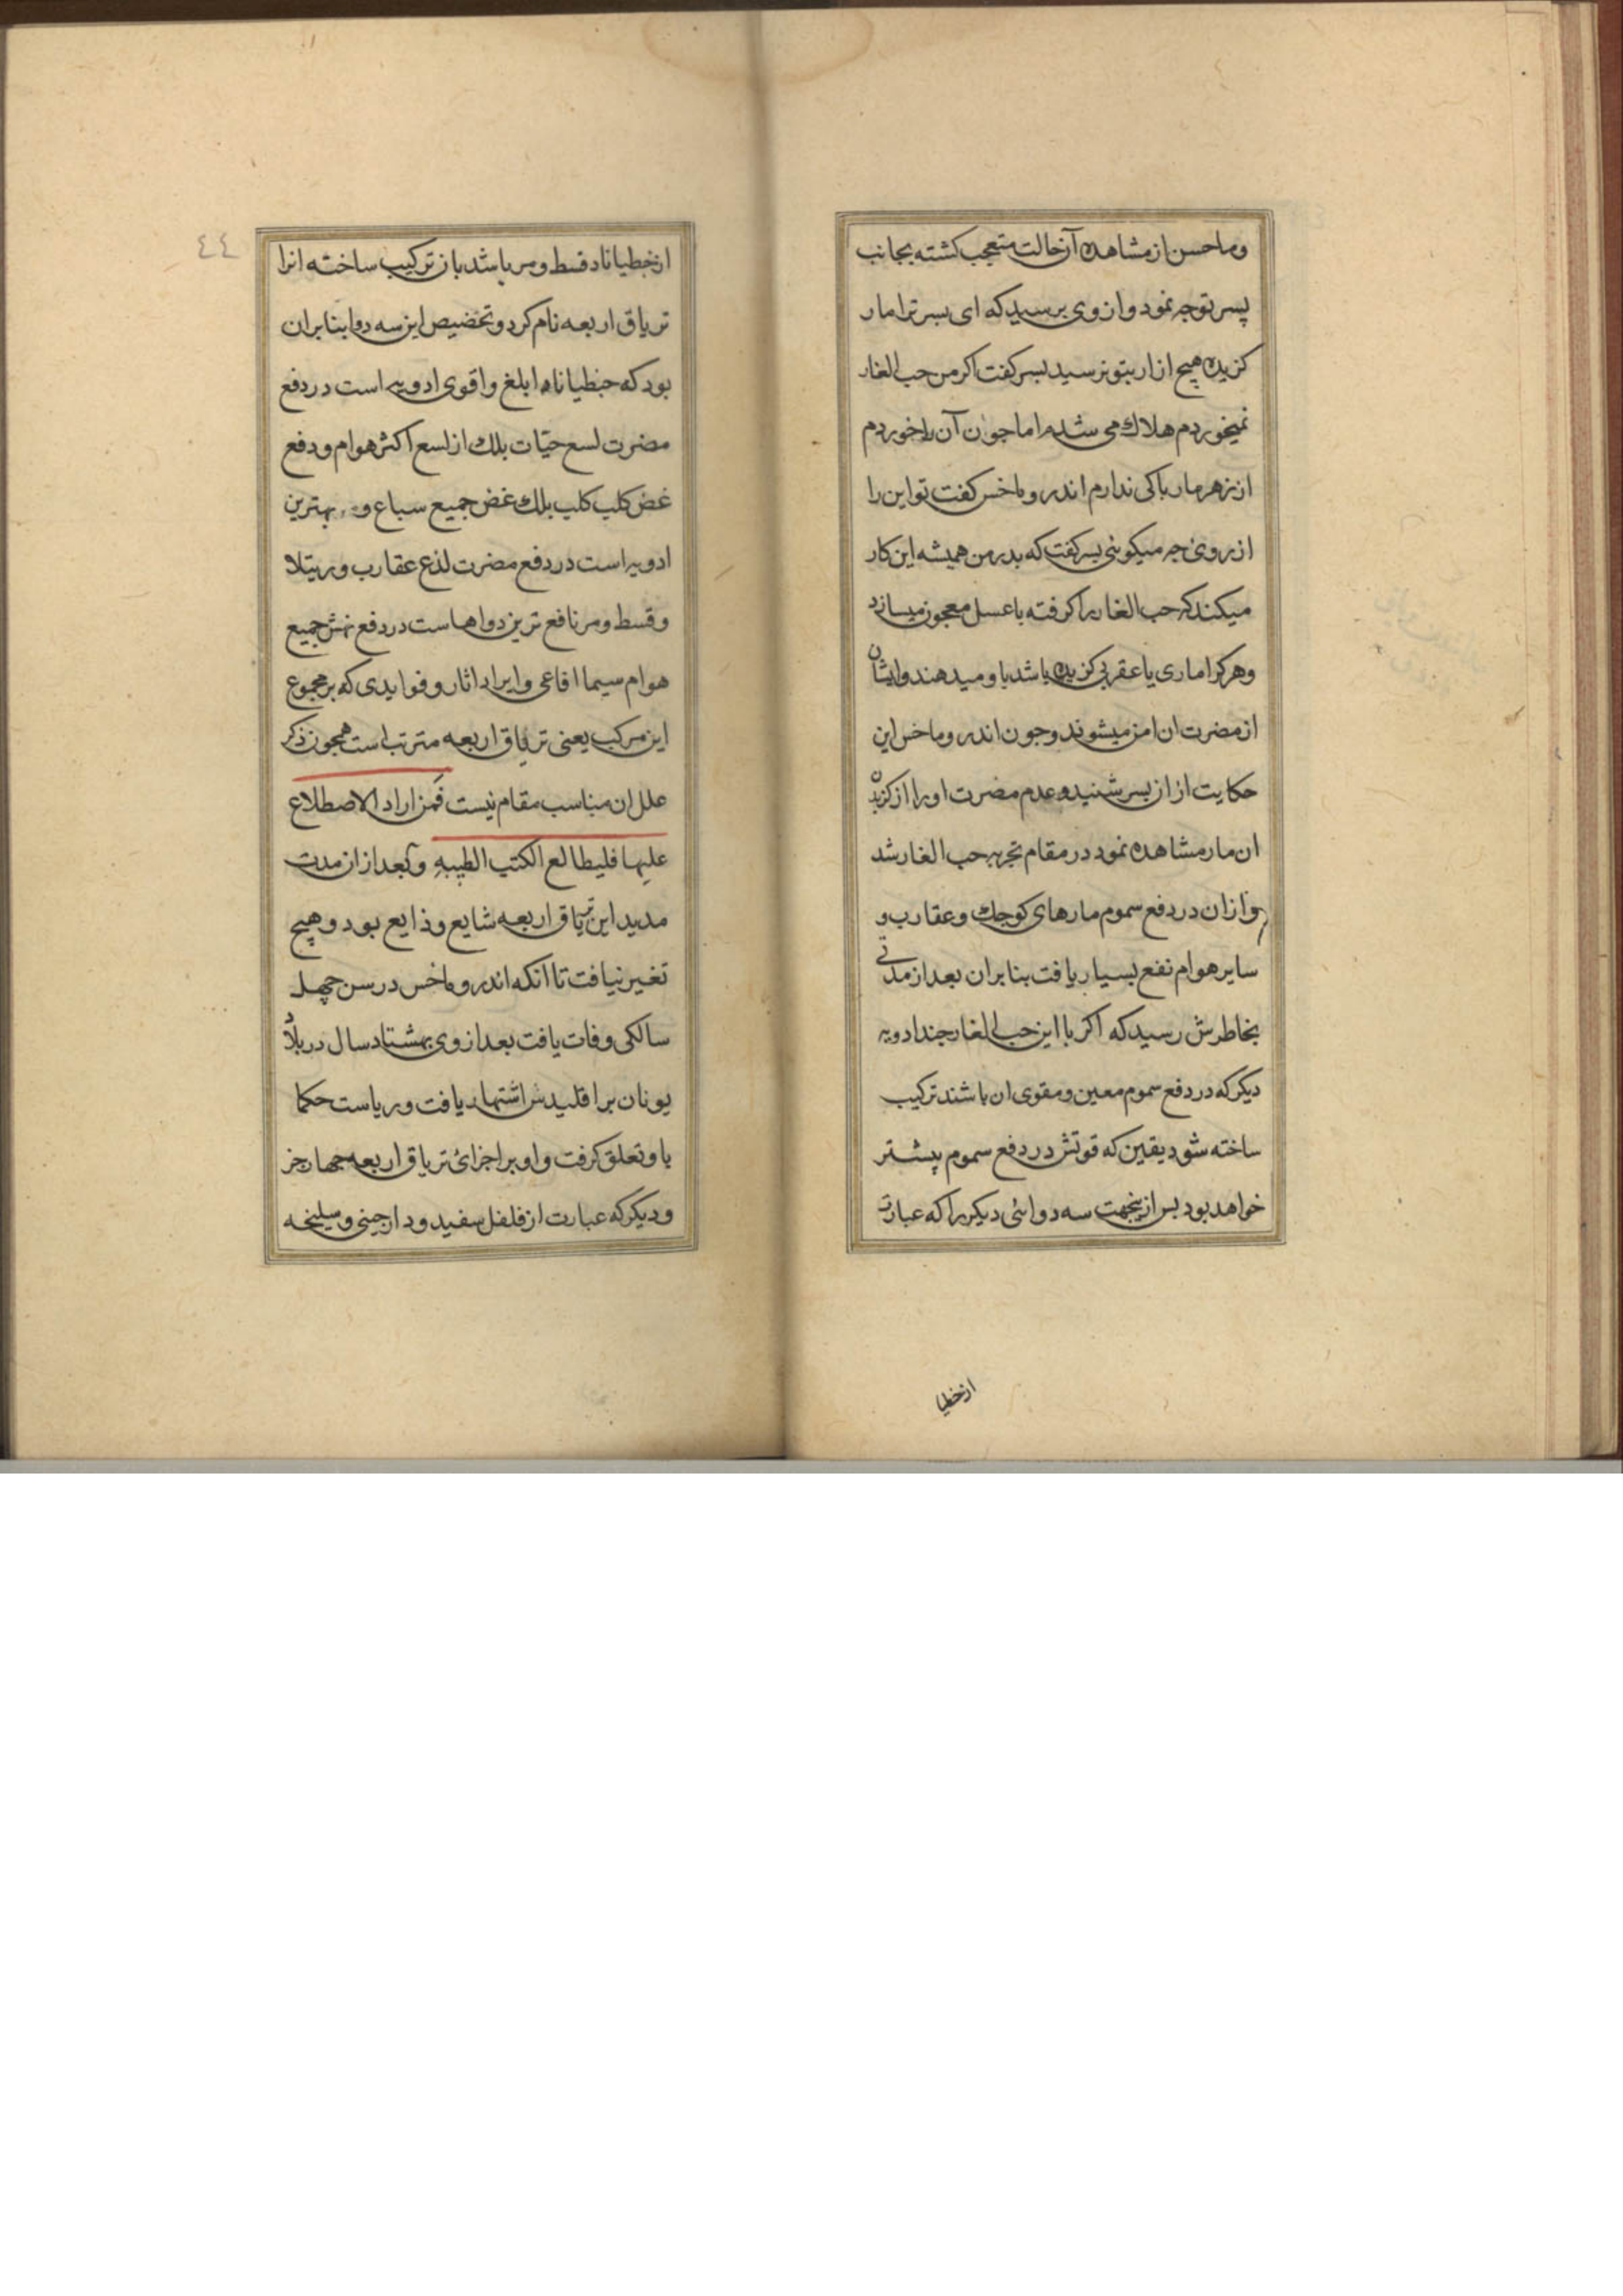 وماحسن از مشاهده آن حالت متعجب كشته بجانب
پسر توجه نمود واز وى برسيد كه اى بسر ترا مار
كزيده هيچ ازار بتو نرسيد بسر كفت اكر من حب الغار
نميخوردم هلاك مى شدم اما جون آن را خوردم
از زهر مار باكى ندارم اندروماخس كفت تو اين را
از روى جه ميكويى بسر كفت كه بدر من هميشه اين كار
ميكند كه حب الغار را كرفته با عسل معجون ميسازد
وهر كرا مارى يا عقربى كزيده باشد باو ميدهند وايشان
از مضرت ان امن ميشوند وجون اندروماخس اين
حكايت از ان بسر شنيد وعدم مضرت او را از كزيدن
ان مار مشاهده نمود در مقام تجربه حب الغار شد
وازان در دفع سموم مارهاى كوجك وعقارب و
ساير هوام نفع بسيار يافت بنابران بعد از مدتى
بخاطرش رسيد كه اكر با اين حب الغار جند ادويه
ديكر كه در دفع سموم معين ومقوى ان باشند تركيب
ساخته شود يقين كه قوتش در دفع سموم بيشتر
خواهد بود بس ازينجهت سه دوائى ديكر را كه عبارت
ازخطيا
٤٤
ازخطيانا وقسط ومر باشد باز تركيب ساخته انرا
ترياق اربعه نام كرد وتخصيص اين سه دوا بنابران
بود كه جنطياناه ابلغ واقوى ادويه است در دفع
مضرت لسع حيّات بلك از لسع اكثر هوام ودفع
غض كلب كلب بلك غض جميع سباع و بهترين
ادويه است در دفع مضرت لذع عقارب ورتيلا
وقسط ومر نافع ترين دواهاست در دفع نهش جميع
هوام سيما افاعى وايراد اثار وفوايدى كه بر مجموع
اين مركب يعنى ترياق اربعه مترتب است همجون ذكر
علل ان مناسب مقام نيست فَمن اراد الاصطلاع
عليها فليطالع الكتب الطبيه وبعد ازان مدت
مديد اين ترياق اربعه شايع وذايع بود وهيچ
تغير نيافت تا انكه اندروماخس در سن چهل
سالكى وفات يافت بعد از وى بهشتاد سال در بلاد
يونان براقليدش اشتهار يافت ورياست حكما
باو تعلق كرفت واو بر اجزائ ترياق اربعه چهار جز
وديكر كه عبارت از فلفل سفيد ودارجينى وسليخه